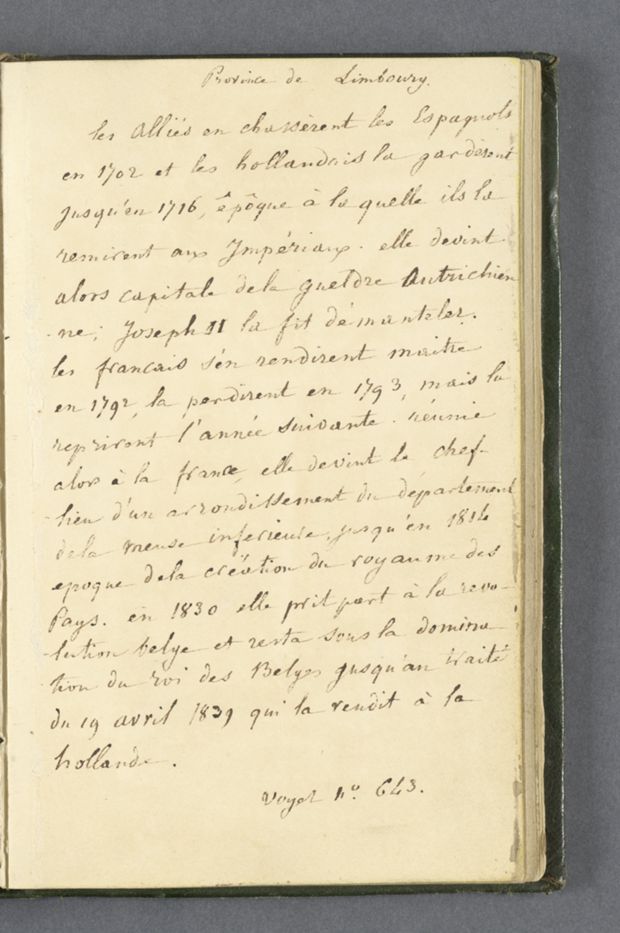 Province de Limbourg.
les alliés en chassèrent les Espagnols
en 1702 et les hollandais la gardèrent
jusqu'en 1716, êpôque à la quelle ils la
remirent aux Impériaux. elle devint
alors capitale dela gueldre Autrichien
-ne; Joseph II la fit démanteler.
les francais s'en rendirent maitre
en 1792, la perdirent en 1793, mais la
reprirent l'année suivante. réunie
alors à la france, elle devint le chef-
lieu d'un arrondissement du département
dela meuse inferieure, jusqu'en 1814
epoque dela création du royaume des
Pays. en 1830 elle prit part à la revo-
-lution belge et resta sous la domina-
-tion du roi des Belges jusqu'au traité
du 19 avril 1839 qui la rendit à la
hollande.
voyez n.o 643.